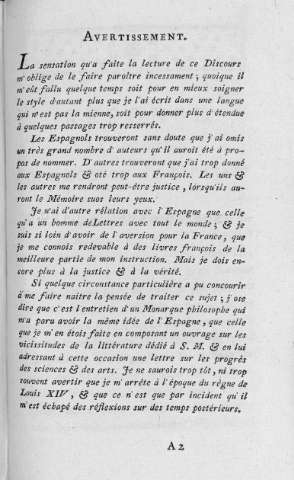 AVERTISSEMENT.
La sensation qu'a faite la lecture de ce Discours
m'oblige de le faire paroître incessament ; quoique il
m'eût fallu quelque temps soit pour en mieux soigner
le style d'autant plus que je l'ai écrit dans une langue
qui n'est pas la mienne, soit pour donner plus d'étendue
à quelques passages trop resserrés.
Les Espagnols trouveront sans doute que j'ai omis
un très grand nombre d'auteurs qu'il auroit été à pro-
pos de nommer. D'autres trouveront que j'ai trop donné
aux Espagnols & oté trop aux François. Les uns &
les autres me rendront peut-être justice, lorsqu'ils au-
ront le Mémoire sous leurs yeux.
Je n'ai d'autre rélation avec l'Espagne que celle
qu'a un homme de Lettres avec tout le monde ; & je
suis si loin d'avoir de l'aversion pour la France, que
je me connois redevable à des livres françois de la
meilleure partie de mon instruction. Mais je dois en-
core plus à la justice & à la vérité.
Si quelque circonstance particulière a pu concourir
à me faire naitre la pensée de traiter ce sujet ; j'ose
dire que c'est l'entretien d'un Monarque philosophe qui
m'a paru avoir la même idée de l'Espagne, que celle
que je m'en étois faite en composant un ouvrage sur les
vicissitudes de la littérature dédié à S. M. & en lui
adressant à cette occasion une lettre sur les progrès
des sciences & des arts. Je ne saurois trop tôt, ni trop
souvent avertir que je m'arrête à l'époque du règne de
Louis XIV, & que ce n'est que par incident qu'il
m'est échapé des réflexions sur des temps postérieurs.
A 2